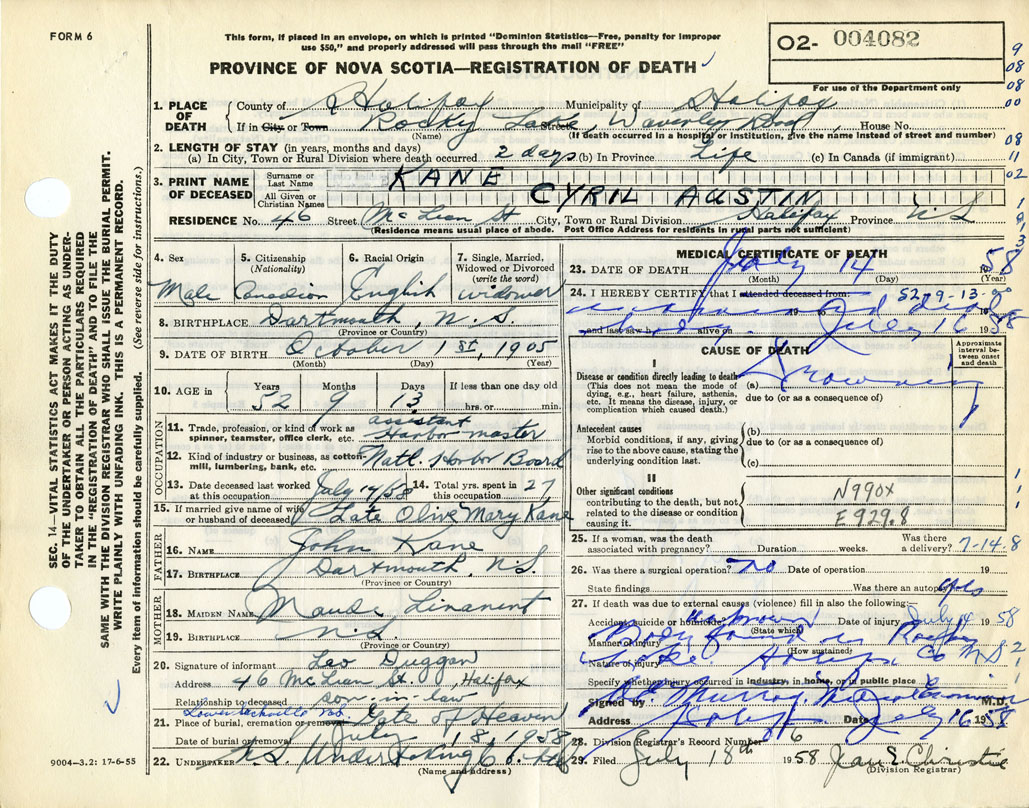 FORM 6
This form, if placed in an envelope, on which is printed "Dominion Statistics—Free, penalty for improper
use $50," and properly addressed will pass through the mail "FREE"
O2- 004082
For use of the Department only
PROVINCE OF NOVA SCOTIA—REGISTRATION OF DEATH
9
08
08
00
08
11
02
1. PLACE OF DEATH
County of Halifax Municipality of Halifax
If in City or Town Rocky Lake, Waverley Road Street House No.
(Name) (If death occurred in a hospital or institution, give the name instead of street and number)
2. LENGTH OF STAY (in years, months and days)
(a) In City, Town or Rural Division where death occurred 2 days (b) In Province Life (c) In Canada (if immigrant)
3. PRINT NAME OF DECEASED
Surname or Last Name KANE
All Given or Christian Names CYRIL AUSTIN
RESIDENCE No. 46 Street McLean St City, Town or Rural Division Halifax Province N.S
(Residence means usual place of abode. Post Office Address for residents in rural parts not sufficient)
4. Sex
Male
5. Citizenship
(Nationality)
Canadian
6. Racial Origin
English
7. Single, Married, Widowed or Divorced
(write the word)
widower
8. BIRTHPLACE Dartmouth, N.S.
(Province or Country)
9. DATE OF BIRTH October 1st, 1905
(Month) (Day) (Year)
10. AGE in Years Months Days If less than one day old
52 9 13 hrs. or min.
OCCUPATION
11. Trade, profession, or kind of work as spinner, teamster, office clerk, etc. assistant Harbor master
12. Kind of industry or business, as cotton-mill, lumbering, bank, etc. Natl. Harbor Board
13. Date deceased last worked at this occupation July /58
14. Total yrs. spent in this occupation 27
15. If married give name of wife or husband of deceased Late Olive Mary Kane
FATHER
16. NAME John Kane
17. BIRTHPLACE Dartmouth, N.S.
(Province or Country)
MOTHER
18. MAIDEN NAME Maude
19. BIRTHPLACE N.S.
(Province or Country)
20. Signature of informant Leo Duggan
Address 46 McLean St. Halifax
Relationship to deceased son-in-law
21. Place of burial, cremation or removal Lower Sackville Gate of Heaven
Date of burial or removal July 18, 1958
22. UNDERTAKER N.S. Undertaking Co.
(Name and address)
9004—3.2: 17-6-55
MEDICAL CERTIFICATE OF DEATH
23. DATE OF DEATH July 14 1958
(Month) (Day)
24. I HEREBY CERTIFY that I attended deceased from: 52-9-13
19
and last saw h alive on July 16 1958
CAUSE OF DEATH
Approximate interval between onset and death
I
Disease or condition directly leading to death
(This does not mean the mode of dying, e.g., heart failure, asthenia, etc. It means the disease, injury, or complication which caused death.)
(a) Drowning
due to (or as a consequence of)
Antecedent causes
Morbid conditions, if any, giving rise to the above cause, stating the underlying condition last.
(b)
due to (or as a consequence of)
(c)
II
Other significant conditions
contributing to the death, but not related to the disease or condition causing it.
N990X
E929.8
25. If a woman, was the death associated with pregnancy? Duration weeks. Was there a delivery? 7-14-8
26. Was there a surgical operation? no Date of operation 19
State findings Was there an autopsy?
27. If death was due to external causes (violence) fill in also the following:
Accident, suicide or homicide? Date of injury July 14 1958
(State which)
Manner of injury Body found in Rocky
(How sustained)
Nature of injury Lake. Halifax Co N S
Specify whether injury occurred in industry, in home, or in public place
Signed by Murray M.D.
Address Halifax Date July 16 1958
28. Division Registrar's Record Number
29. Filed July 18th 1958 Christie
(Division Registrar)
SEC. 14—VITAL STATISTICS ACT MAKES IT THE DUTY
OF THE UNDERTAKER OR PERSON ACTING AS UNDER-
TAKER TO OBTAIN ALL THE PARTICULARS REQUIRED
IN THE "REGISTRATION OF DEATH" AND TO FILE THE
SAME WITH THE DIVISION REGISTRAR WHO SHALL ISSUE THE BURIAL PERMIT.
WRITE PLAINLY WITH UNFADING INK. THIS IS A PERMANENT RECORD.
Every item of information should be carefully supplied. (See reverse side for instructions.)